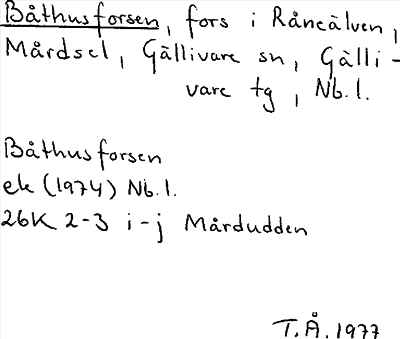 Båthusforsen, fors i Råneälven,
Mårdsel, Gällivare sn, Gälli-
vare tg, Nb.l.
Båthusforsen
ek (1974) Nb.l.
26K 2-3 i-j Mårdudden
T.Å. 1977